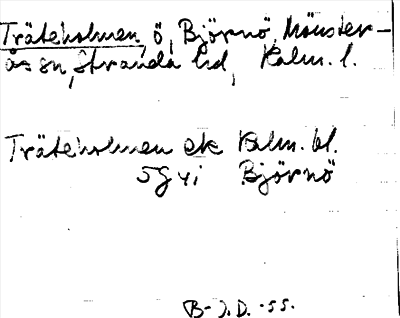 Träteholmen, ö, Björnö, Mönster-
ås sn, Stranda hd, Kalm. l.
Träteholmen ek Kalm. bl.
5g4i Björnö
B-J.D. -55.